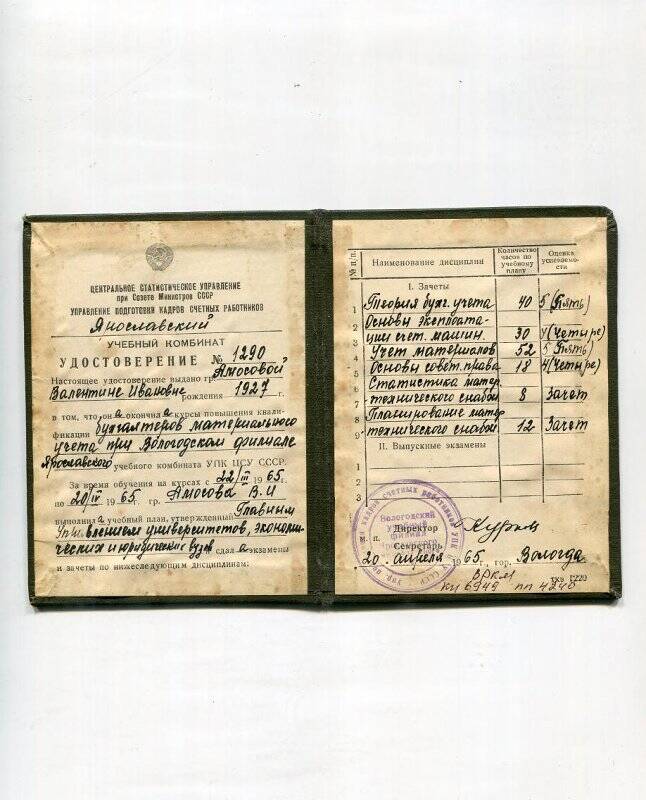 ЦЕНТРАЛЬНОЕ СТАТИСТИЧЕСКОЕ УПРАВЛЕНИЕ
при Совете Министров СССР
УПРАВЛЕНИЕ ПОДГОТОВКИ КАДРОВ СЧЕТНЫХ РАБОТНИКОВ
Ярославский
УЧЕБНЫЙ КОМБИНАТ
УДОСТОВЕРЕНИЕ № 1290
Настоящее удостоверение выдано гр. Амосовой
Валентине Ивановне рождения 1927 г.
в том, что он а окончил а курсы повышения квали-
фикации бухгалтеров материального
учета при Вологодском филиале
Ярославского учебного комбината УПК ЦСУ СССР.
За время обучения на курсах с 22/III 1965 г.
по 20/IV 1965 г. гр. Амосова В.И
выполнил а учебный план, утвержденный Главным
Управлением университетов, экономи-
ческих и юридических вузов сдал а экзамены
и зачеты по нижеследующим дисциплинам:
№ п/п. Наименование дисциплин Количество часов по учебному плану Оценка успеваемо-сти
I. Зачеты
1 Теория бухг. учета 40 5 (Пять)
2 Основы эксплоата-
3 ции счет. машин. 30 4 (Четыре)
4 Учет материалов 52 5 (Пять)
5 Основы совет. права 18 4 (Четыре)
6 Статистика матер.
7 технического снабж 8 Зачет
8 Планирование матер
9 технического снабж 12 Зачет
II. Выпускные экзамены
1
2
3
Вологодский
филиал
м. п. Директор
Секретарь
20 апреля 1965 г., гор. Вологда
ВРКМ
КП 6949 ПП 4240